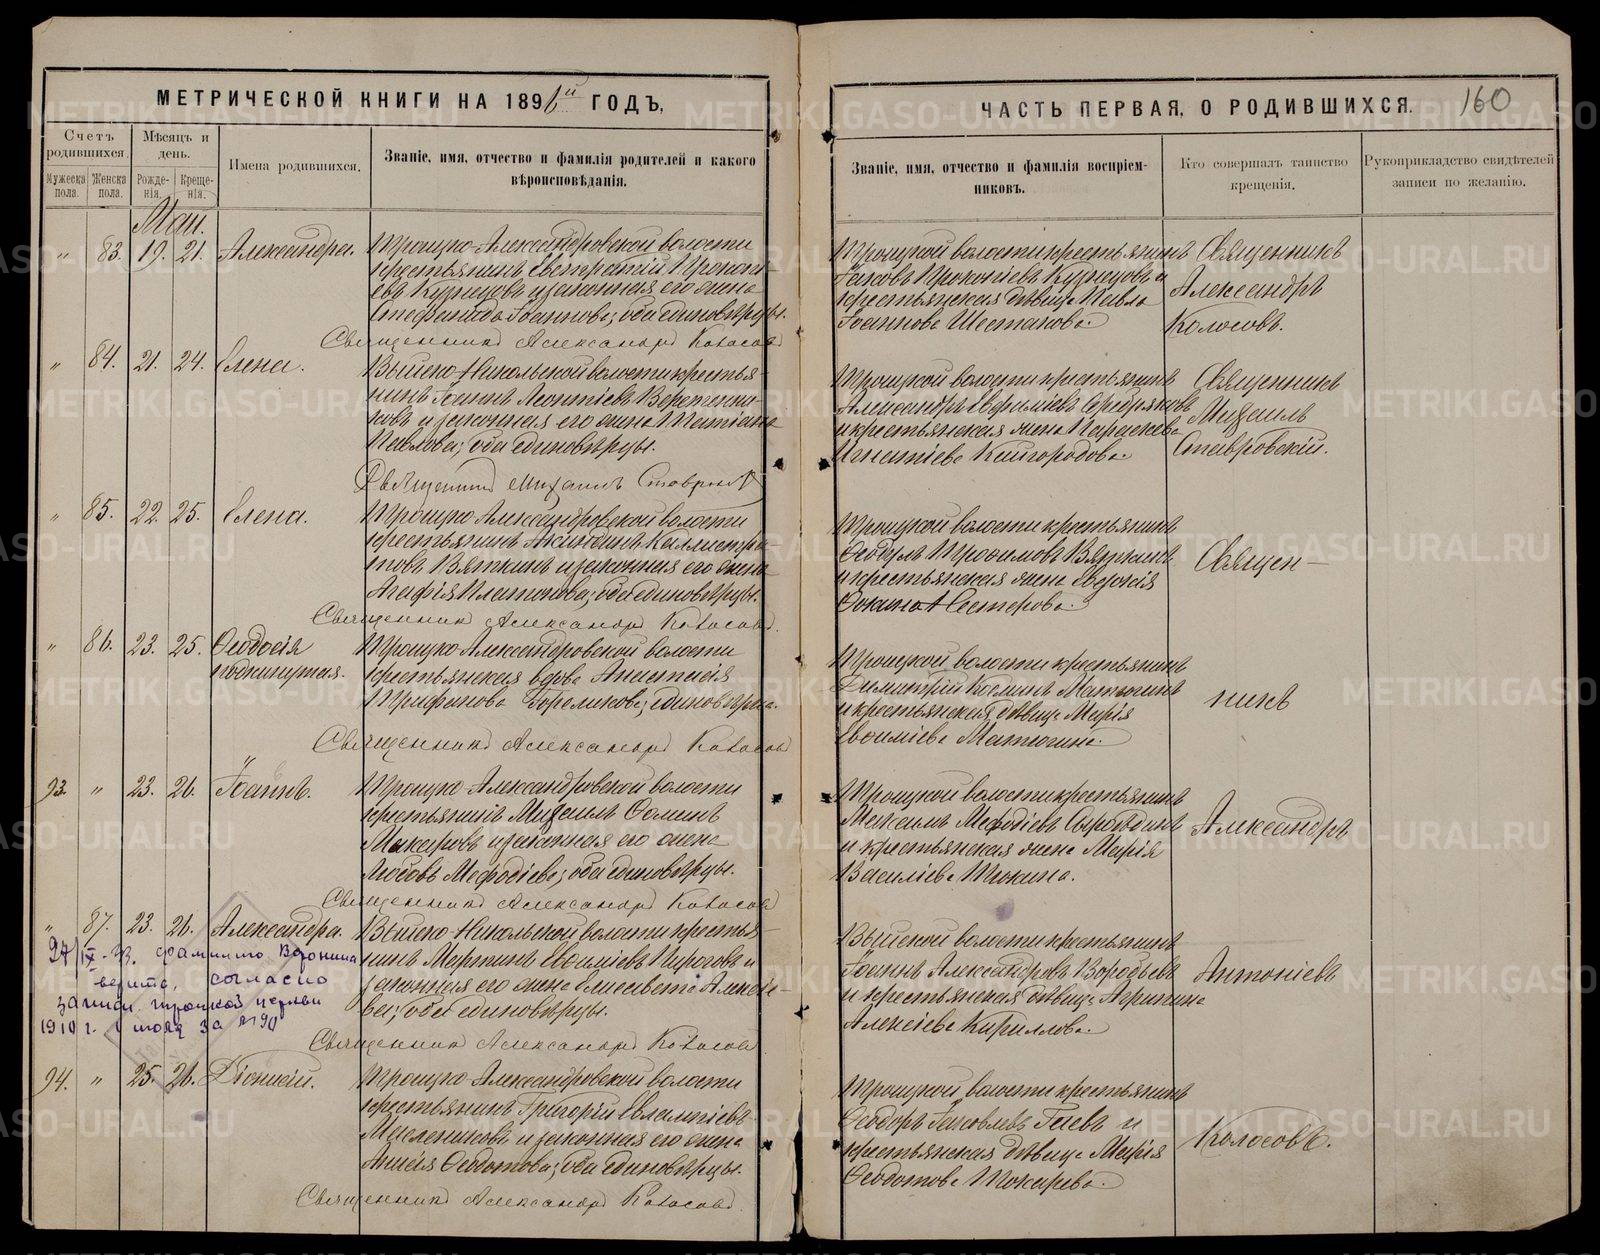 МЕТРИЧЕСКОЙ КНИГИ НА 1896й ГОДЪ,
Счетъ родившихся.
Мѣсяцъ и день.
Имена родившихся.
Званіе, имя, отчество и фамилія родителей и какого вѣроисповѣданія.
Мужеска пола.
Женска пола.
Рожде-нія.
Креще-нія.
Маи.
„ 83. 19. 21. Александра.
Троицко-Александровской волости
крестьянинъ Евстратій Прокопі-
евъ Кузнецовъ и законная его жена
Стефанида Іоаннова; оба единовѣрцы.
Священникъ Александръ Колосовъ
„ 84. 21. 24. Елена.
Выйско-Никольской волости крестья-
нинъ Іоаннъ Леонтіевъ
и законная его жена Татіана
Павлова; оба единовѣрцы.
Священникъ Михаилъ Ставровскій
„ 85. 22. 25. Елена.
Троицко-Александровской волости
крестьянинъ Акиндинъ Каллистра-
товъ Вяткинъ и законная его жена
Агафія Платонова; оба единовѣрцы.
Священникъ Александръ Колосовъ.
„ 86. 23. 25. Ѳеодосія
подкинутая.
Троицко-Александровской волости
крестьянская вдова Анастасія
Трифонова Горемыкова; единовѣрка.
Священникъ Александръ Колосовъ
93. „ 23. 26. Іоаннъ.
Троицко-Александровской волости
крестьянинъ Михаилъ Ѳоминъ
Макаровъ и законная его жена
Любовь Мефодіева; оба единовѣрцы.
Священникъ Александръ Колосовъ
„ 87. 23. 26. Александра.
Выйско-Никольской волости крестья-
нинъ Мартинъ Евѳиміевъ Пироговъ и
законная его жена Елисавета Алексѣе-
ва; оба единовѣрцы.
Священникъ Александръ Колосовъ
фамилію Воронина
верить, согласно
записи троицкой церкви
1910 г. 1 мая за №90
94. „ 25. 26. Діонисій.
Троицко-Александровской волости
крестьянинъ Григорій Евлампіевъ
Масленниковъ и законная его жена
Анисія Ѳедотова; оба единовѣрцы.
Священникъ Александръ Колосовъ.
ЧАСТЬ ПЕРВАЯ, О РОДИВШИХСЯ.
160
Званіе, имя, отчество и фамилія воспріем-никовъ.
Кто совершалъ таинство крещенія.
Рукоприкладство свидѣтелей записи по желанію.
Троицкой волости крестьянинъ
Іаковъ Прокопіевъ Кузнецовъ и
крестьянская дѣвица Павла
Іоаннова Шестакова.
Священникъ
Александръ
Колосовъ.
Троицкой волости крестьянинъ
Александръ Евфиміевъ Серебряковъ
и крестьянская жена Параскева
Игнатіева Кайгородова.
Священникъ
Михаилъ
Ставровскій.
Троицкой волости крестьянинъ
Ѳеодулъ Трофимовъ Вяткинъ
и крестьянская жена Евдокія
Ѳокина Нестерова.
Троицкой волости крестьянинъ
Димитрій Козминъ Матюгинъ
и крестьянская дѣвица Марія
Евѳиміева Матюгина.
Троицкой волости крестьянинъ
Максимъ Мефодіевъ Сыроѣдинъ
и крестьянская жена Марія
Василіева Тюкина.
Выйской волости крестьянинъ
Іоаннъ Александровъ Воробьевъ
и крестьянская дѣвица
Алексіева Кириллова.
Троицкой волости крестьянинъ
Ѳеодоръ Іаковлевъ Гаевъ и
крестьянская дѣвица Марія
Ѳеодотова Токарева.
Священ-
никъ
Александръ
Антоніевъ
Колосовъ.
METRIKI.GASO-URAL.RU